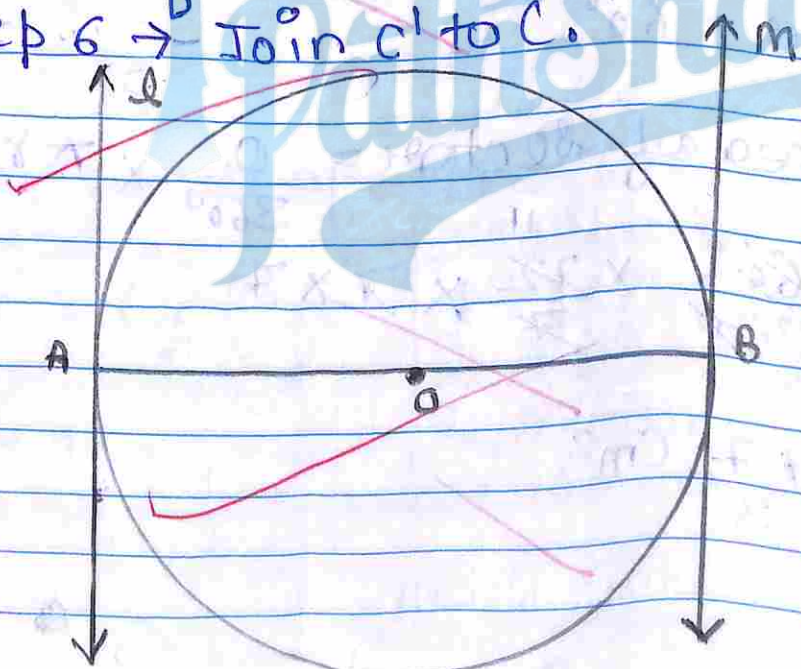 ep 6 → Join C' to C.
l
m
A
B
O